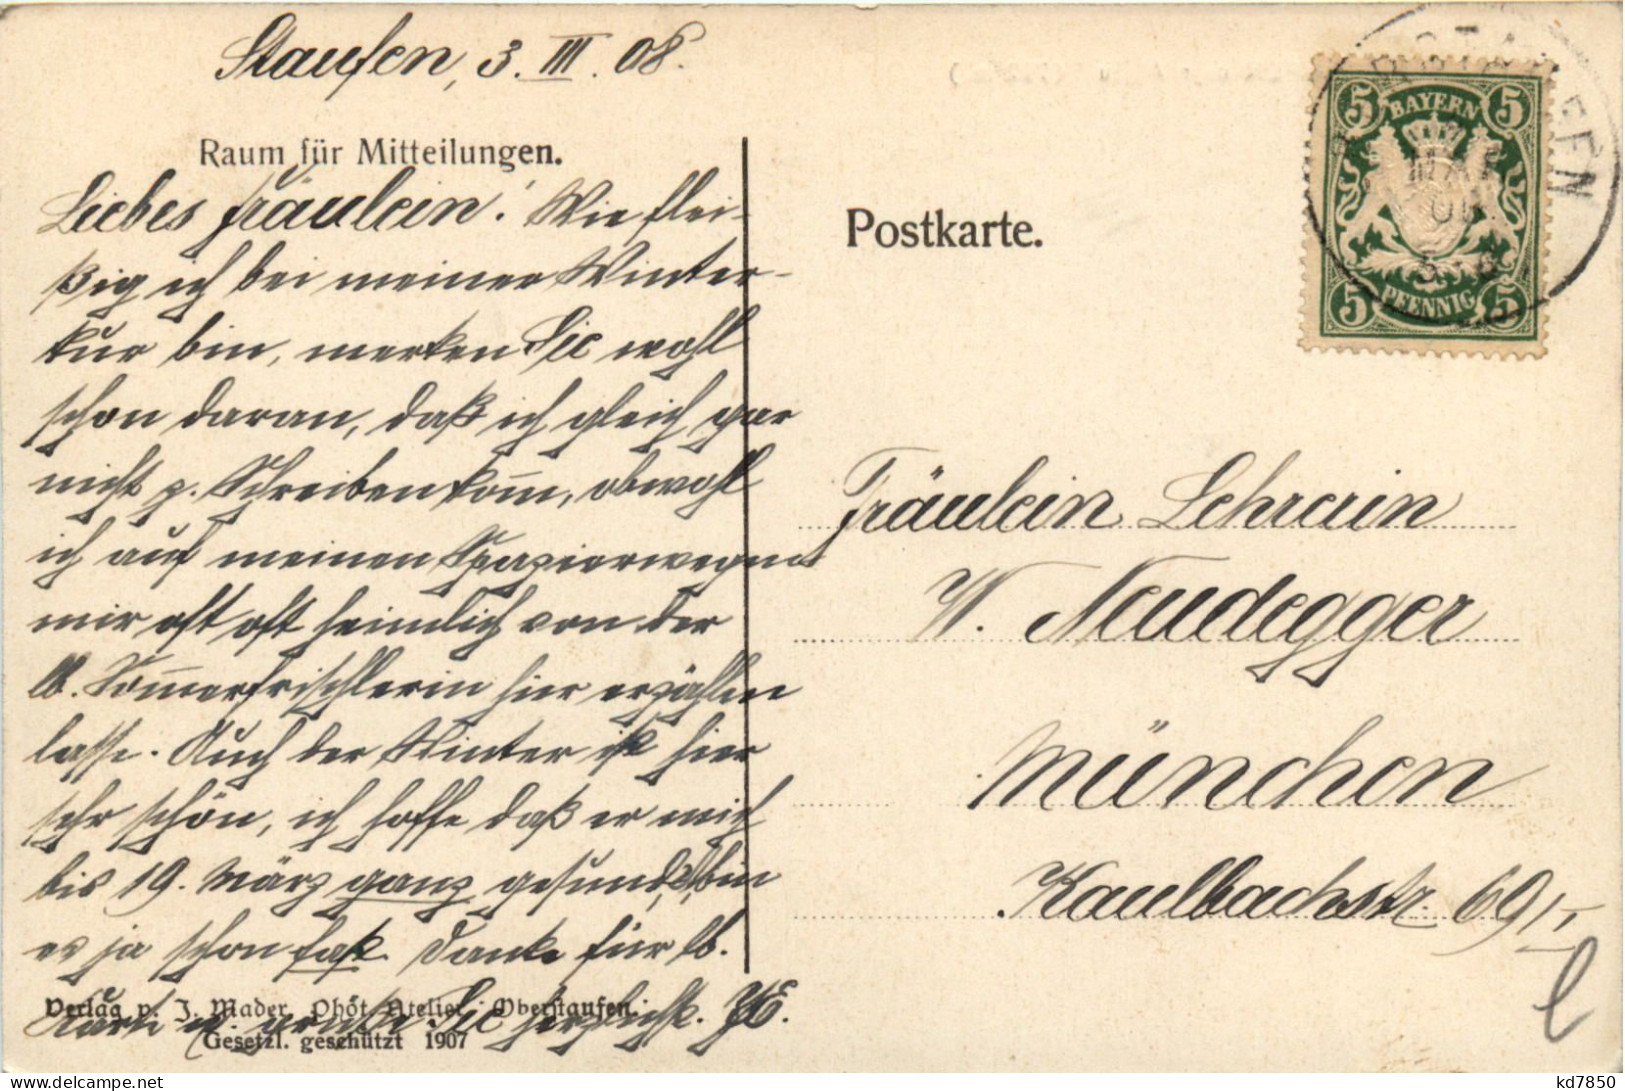 Staufen, 3. III. 08.
Raum für Mitteilungen.
Liebes Fräulein! Wie flei-
ßig ich bei meiner Winter-
kur bin, merken Sie wohl
schon daran, daß ich gleich gar
nicht z. Schreiben kom̄, obwohl
ich auf meinen Spazierwegen
mir oft oft heimlich von der
lb. Som̄erfrischlerin hier erzählen
lasse. Auch der Winter ist hier
sehr schön, ich hoffe daß er mich
bis 19. März ganz gesund, bin
es ja schon fast. Danke für lb.
Karte u. grüße Sie herzlichst.
Verlag v. J. Mader, Phot. Atelier, Oberstaufen.
Gesetzl. geschützt 1907
Postkarte.
BAYERN
5 5
5 5
PFENNIG
Fräulein Lehrerin
W. Neudegger
München
Kaulbachstr. 69/I
kd7850